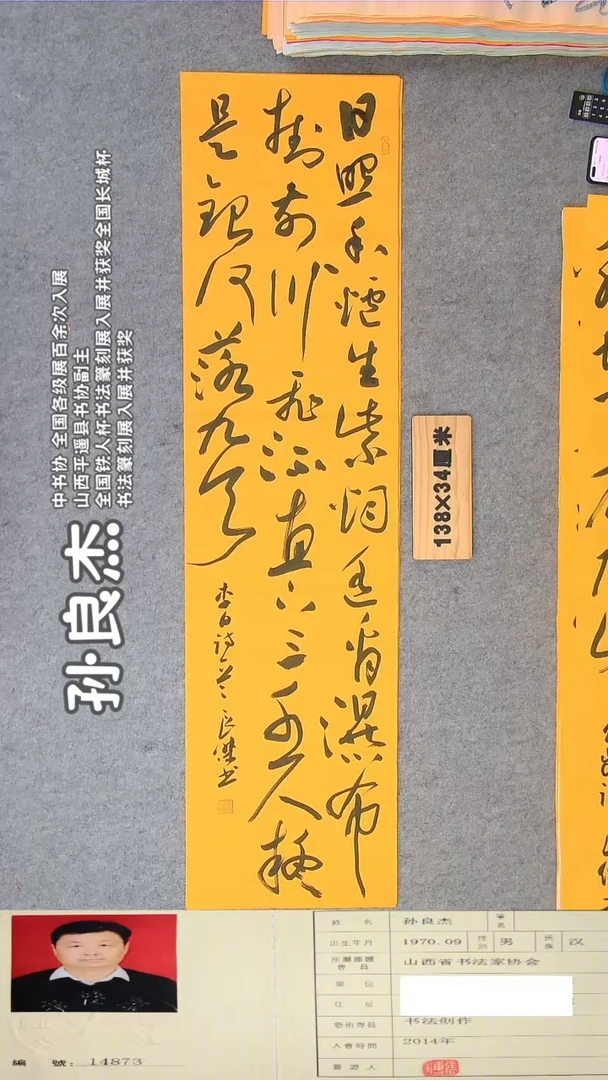 日照香爐生紫烟遥看瀑布
挂前川飞流直下三千尺疑
是银河落九天
李白诗一首 良傑书
孙良杰
中书协 全国各级展百余次入展
山西平遥县书协副主
全国铁人杯书法篆刻展入展并获奖全国长城杯
书法篆刻展入展并获奖
138×34厘米
姓名 孙良杰 筆名
出生年月 1970.09 性別 男 民族 汉
所屬團體會員 山西省书法家协会
單位
住址
藝術專長 书法创作
入會時間 2014年
簽證人
編號: 14873